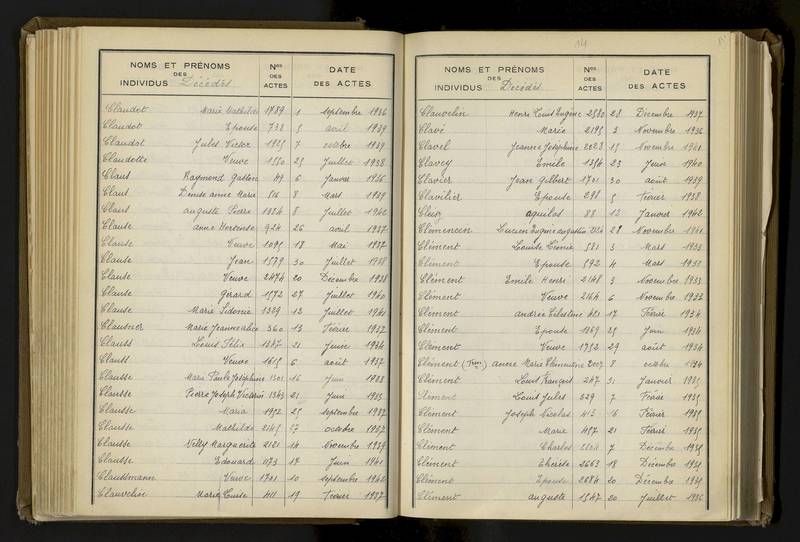 NOMS ET PRÉNOMS DES INDIVIDUS Décédés Nos DES ACTES DATE DES ACTES
Claudot Marie Mathilde 1789 1 septembre 1936
Claudot Epouse 738 5 avril 1939
Claudot Jules Victor 1925 7 octobre 1939
Claudotte Veuve 1550 25 Juillet 1938
Claus Raymond Gaston 49 6 Janvier 1936
Claus Denise Anne Marie 516 8 Mars 1939
Claus auguste Pierre 1324 8 Juillet 1942
Clause anne Hortense 924 26 avril 1937
Clause Veuve 1095 18 Mai 1937
Clause Jean 1579 30 Juillet 1938
Clause Veuve 2474 20 Décembre 1938
Clause Gérard 1572 27 Juillet 1940
Clause Marie Sidonie 1329 12 Juillet 1941
Clausner Marie Jeanne alice 360 12 Février 1937
Clauss Louis Félix 1347 21 Juin 1934
Clauss Veuve 1615 6 août 1937
Clausse Marie Paule Joséphine 1301 16 Juin 1933
Clausse Pierre Joseph Victorin 1343 21 Juin 1933
Clausse Maria 1952 25 septembre 1937
Clausse Mathilde 2145 27 octobre 1937
Clausse Nelly Marguerite 2121 14 Novembre 1939
Clausse Edouard 1173 17 Juin 1941
Claussmann Veuve 1701 10 septembre 1942
Clauvelin Marie Louise 411 19 Février 1937
14
NOMS ET PRÉNOMS DES INDIVIDUS Décédés Nos DES ACTES DATE DES ACTES
Clauvelin Henri Louis Eugène 2580 28 Décembre 1937
Clavé Marie 2195 3 Novembre 1936
Clavel Jeanne Joséphine 2028 15 Novembre 1941
Clavey Emile 1354 23 Juin 1940
Clavier Jean Gilbert 1701 30 août 1939
Clavilier Epouse 298 5 Février 1938
aquilas 88 12 Janvier 1942
Lucien Eugène augustin 2124 28 Novembre 1941
Clément Louise 581 3 Mars 1933
Clément Epouse 592 4 Mars 1933
Clément Emile Henri 2148 3 Novembre 1933
Clément Veuve 2164 6 Novembre 1933
Clément andrée Celestine 421 17 Février 1934
Clément Epouse 1369 25 Juin 1934
Clément Veuve 1752 29 août 1934
Clément anne Marie Clémentine 2007 8 octobre 1934
Clément Louis François 247 31 Janvier 1935
Clément Louis Jules 329 7 Février 1935
Clément Joseph Nicolas 412 16 Février 1935
Clément Marie 457 21 Février 1935
Clément Charles 7 Décembre 1935
Clément Thérèse 2663 18 Décembre 1935
Clément Epouse 2684 20 Décembre 1935
Clément auguste 1547 20 Juillet 1936